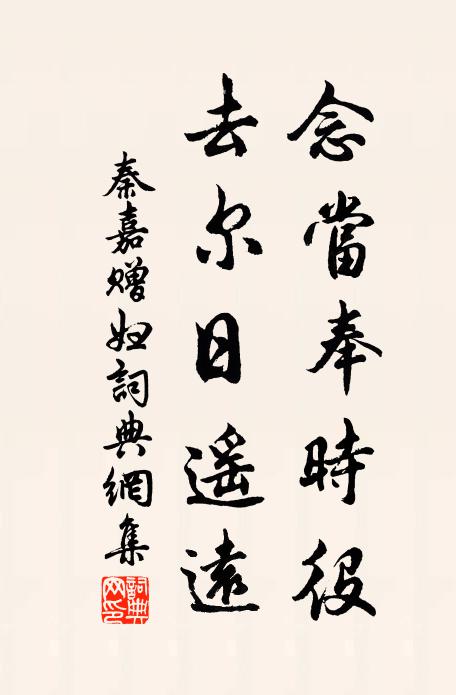 念當奉時役
去尔日遥遠
秦嘉贈妇詞典網集
詞典网印